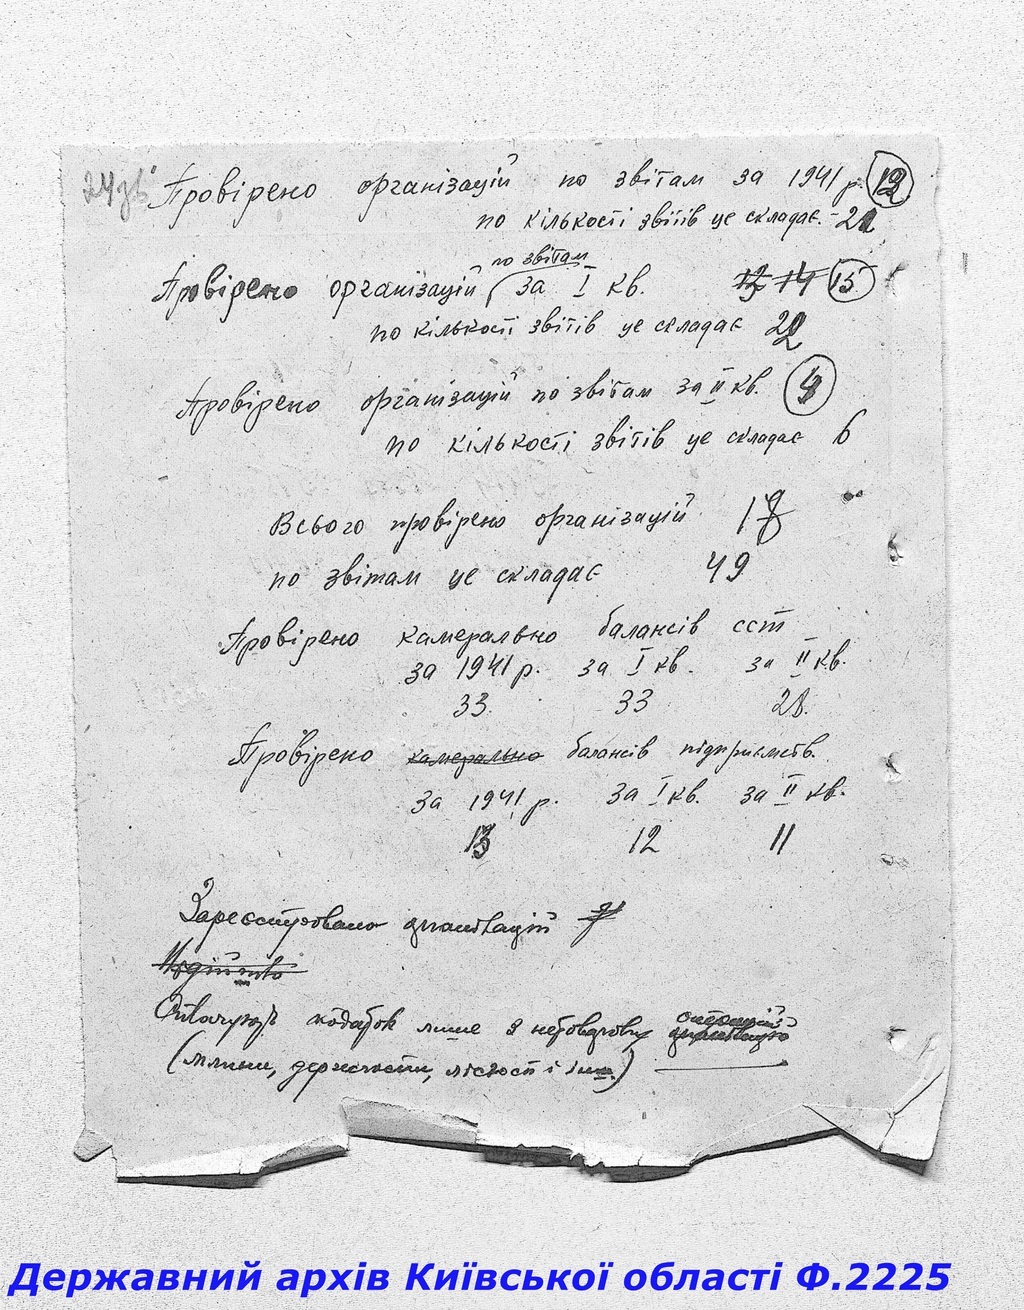 Провірено організацій по звітам за 1941 р. 12
по кількості звітів це складає - 21
по звітам
Провірено організацій за I кв. 13 14 15
по кількості звітів це складає 22
Провірено організацій по звітам за II кв. 4
по кількості звітів це складає 6
Всього провірено організацій
по звітам це складає 49
Провірено камерально балансів ССТ
за 1941 р. за I кв. за II кв.
33 33 28.
Провірено камерально балансів підприємств.
за 1941 р. за I кв. за II кв.
13 12 11
Зареєстровано організацій
податок лише з
(млини, і інш.)
Державний архів Київської області Ф.2225